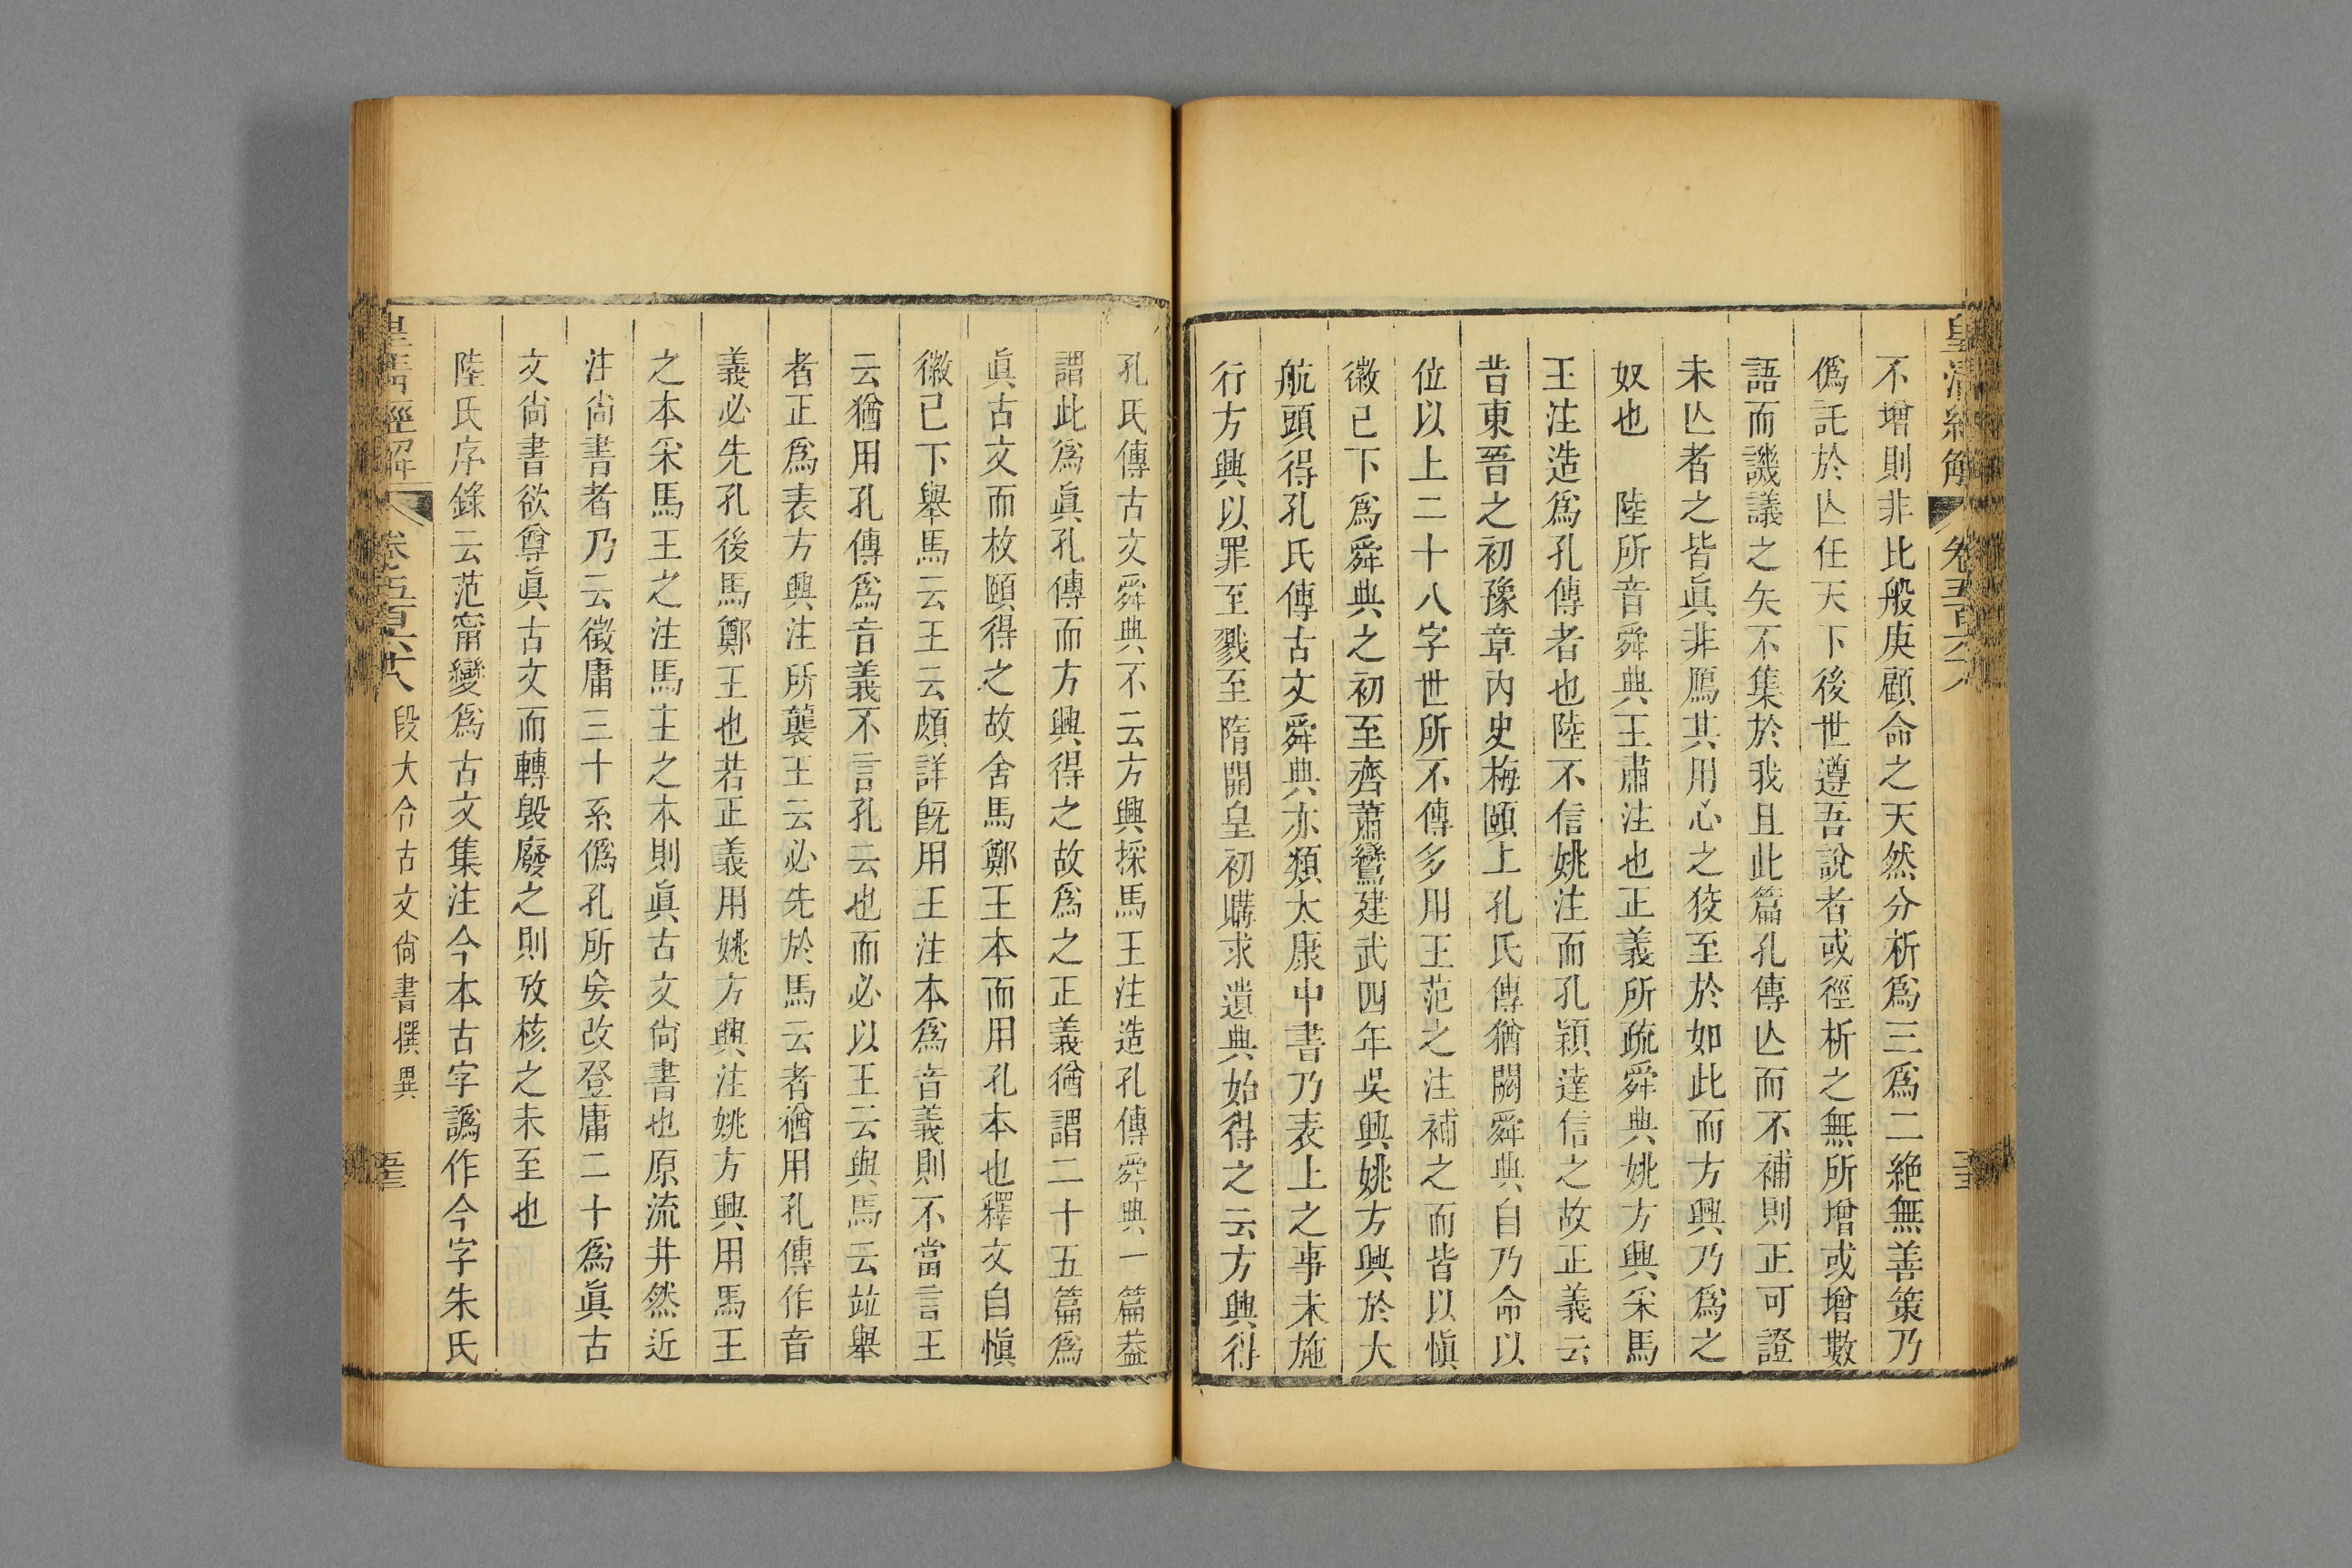 不增則非比般庚顧命之天然分析爲三爲二絶無善策乃
僞託於亾任天下後世遵吾說者或徑析之無所增或增數
語而譏議之矢不集於我且此篇孔傳亾而不補則正可證
未亾者之皆眞非鴈其用心之狡至於如此而方興乃爲之
奴也　陸所音舜典王肅注也正義所疏舜典姚方興采馬
王注造爲孔傳者也陸不信姚注而孔穎達信之故正義云
昔東晉之初豫章内史梅頤上孔氏傳猶闕舜典自乃命以
位以上二十八字世所不傳多用王范之注補之而皆以愼
徽已下爲舜典之初至齊蕭鸞建武四年吳興姚方興於大
航頭得孔氏傳古文舜典亦類太康中書乃表上之事未施
行方興以罪至戮至隋開皇初購求遺典始得之云方興得
孔氏傳古文舜典不云方興採馬王注造孔傳舜典一篇葢
謂此爲眞孔傳而方興得之故爲之正義猶謂二十五篇爲
眞古文而枚頤得之故舍馬鄭王本而用孔本也釋文自愼
徽已下舉馬云王云頗詳旣用王注本爲音義則不當言王
云猶用孔傳爲音義不言孔云也而必以王云與馬云竝舉
者正爲表方興注所襲王云必先於馬云者猶用孔傳作音
義必先孔後馬鄭王也若正義用姚方興注姚方興用馬王
之本采馬王之注馬王之本則眞古文尙書也原流井然近
注尙書者乃云徵庸三十系僞孔所妄改登庸二十爲眞古
文尙書欲尊眞古文而轉毀廢之則攷核之未至也
陸氏序錄云范甯變爲古文集注今本古字譌作今字朱氏
皇清經解　卷五百六十八　段大令古文尙書撰異